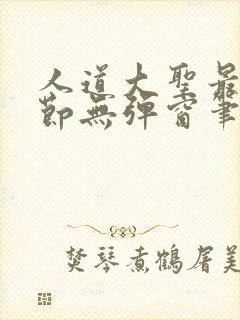 人道大聖最
節無彈窗筆
焚琴煮鶴屠美